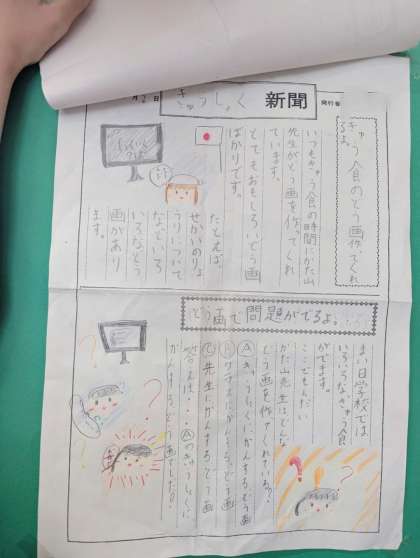 きゅうしょく 新聞
発行者
きゅう食のどう画作ってくれ
るよ。
いつもきゅう食の時間にかた山
先生がどう画を作ってくれ
ています。
とてもおもしろいどう画
ばかりです。
たとえば、
せかいのりょ
うりについて
などいろい
ろなどう
画があり
ます。
どう画で問題がでるよ。
まい日学校では
いろいろなきゅう食
がでます。
ここでもんだい
かた山先生はどんな
どう画を作ってくれているの？
Ⓐきゅうしょくにかんするどう画
Ⓒ先生にかんするどう画
答えは・・・Ⓐのきゅうしょくに
かんするどう画でした。